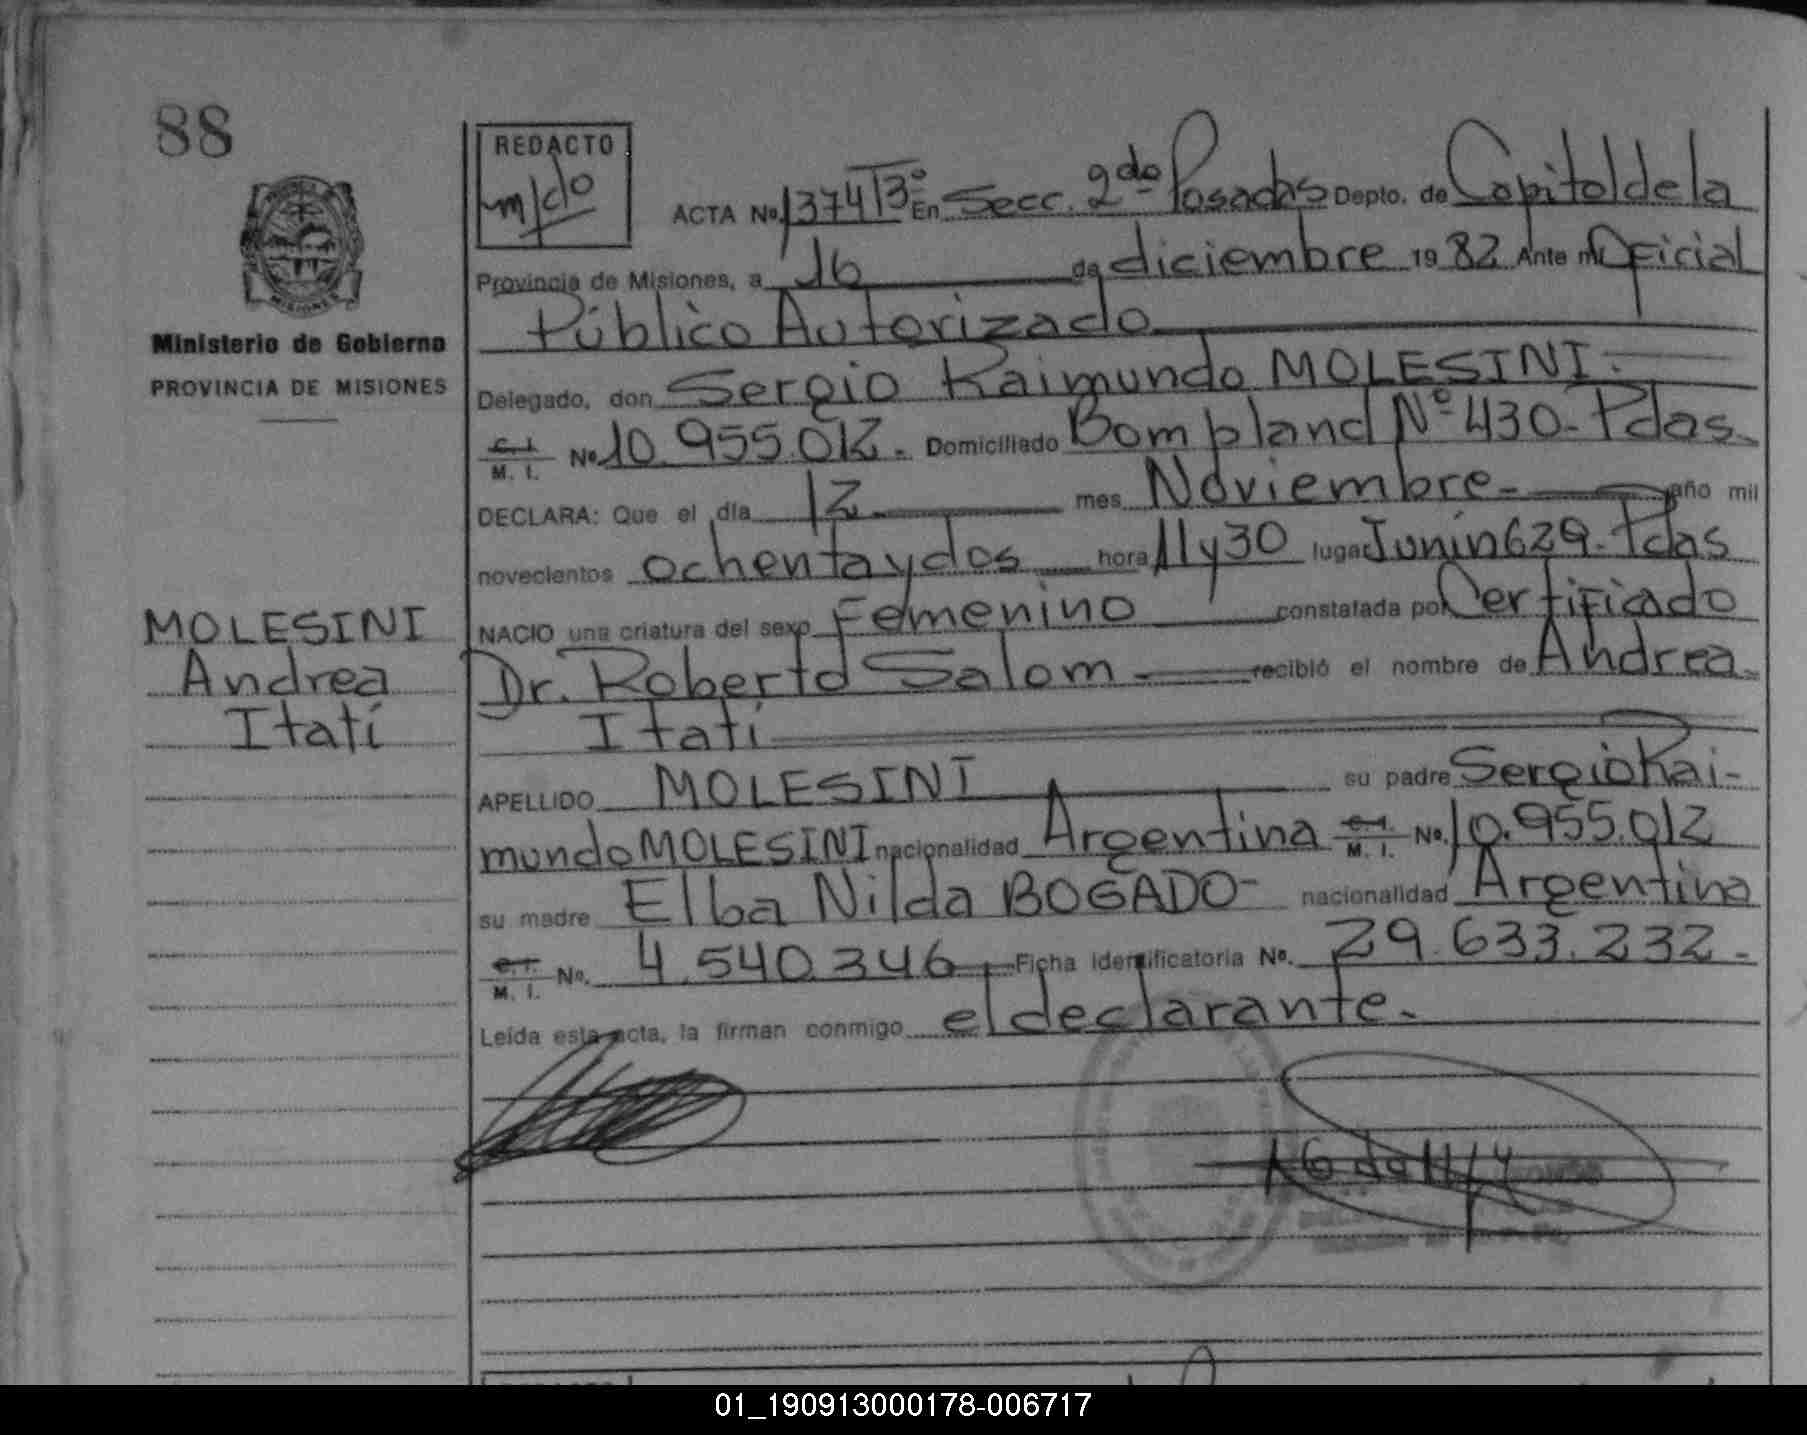 88
REDACTO
m/do
ACTA No. 1374 Tº3 En Secc. 2do Posadas Depto. de Capital de la
Provincia de Misiones, a 16 de diciembre 1982 Ante mí Oficial
Público Autorizado
Ministerio de Gobierno
PROVINCIA DE MISIONES
Delegado, don Sergio Raimundo MOLESINI.
C. I. M. I. No 10.955.012. Domiciliado Bompland Nº 430. Pdas.
DECLARA: Que el día 12 mes Noviembre año mil
novecientos ochenta y dos hora 11 y 30 lugar Junín 629. Pdas
NACIO una criatura del sexo Femenino constatada por Certificado
Dr. Roberto Salom recibió el nombre de Andrea
Itatí
MOLESINI
Andrea
Itatí
APELLIDO MOLESINI su padre Sergio Rai-
mundo MOLESINI nacionalidad Argentina C. I. M. I. No. 10.955.012
su madre Elba Nilda BOGADO- nacionalidad Argentina
C. I. M. I. No. 4.540.346 Ficha identificatoria No. 29.633.232.
Leída esta acta, la firman conmigo el declarante.
01_190913000178-006717